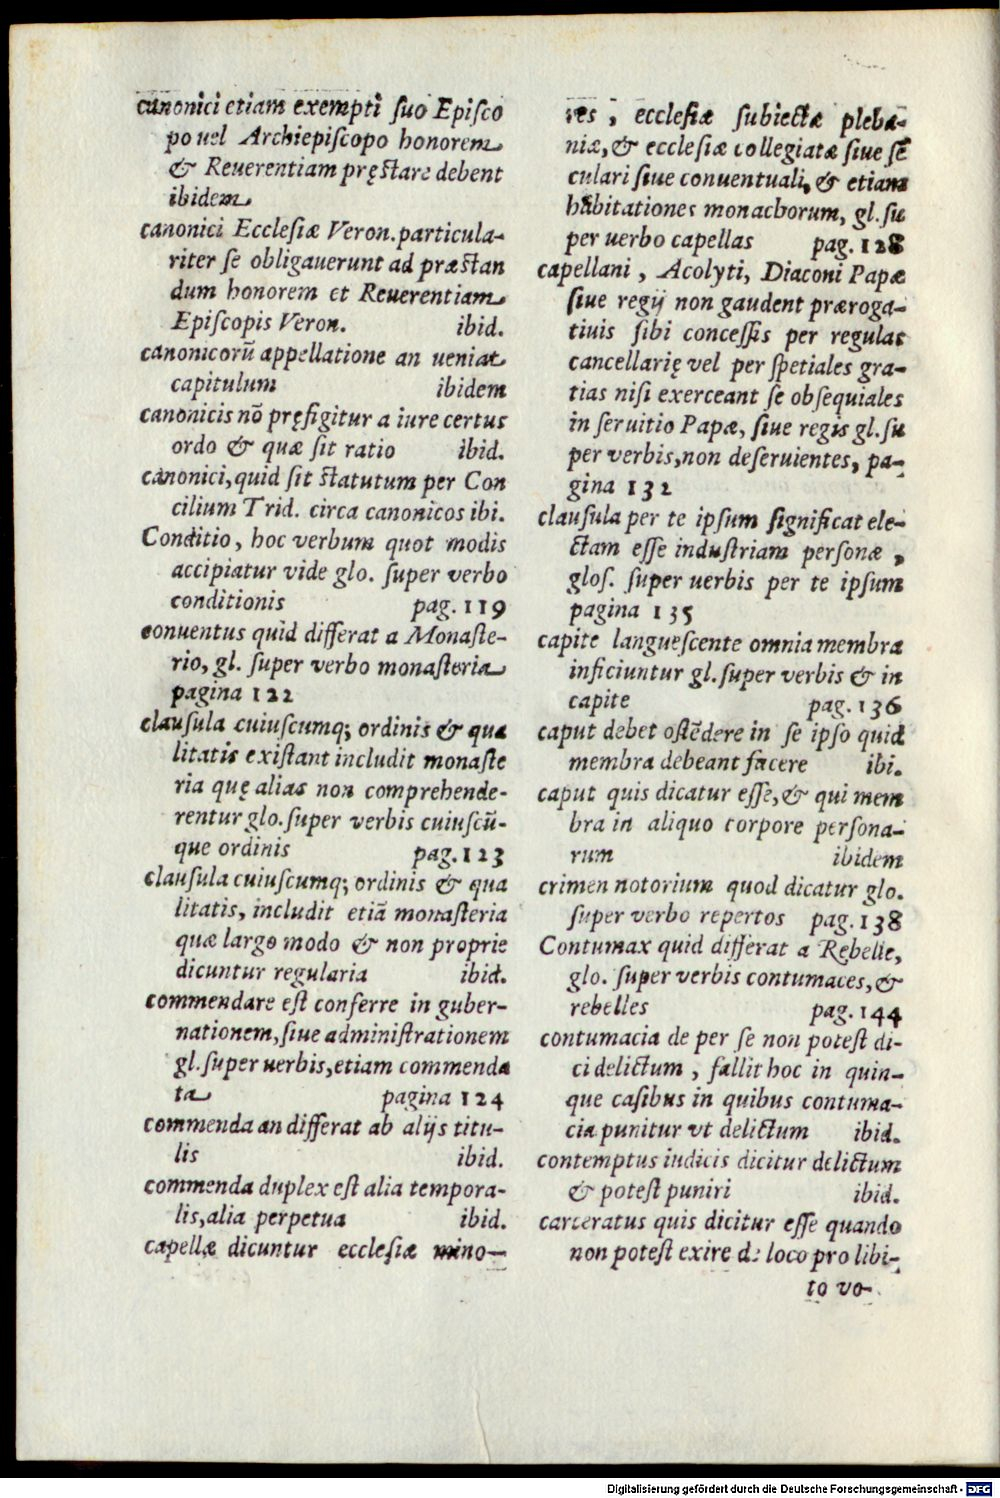 canonici etiam exempti ſuo Epiſco
po uel Archiepiſcopo honorem
& Reuerentiam pręſtare debent
ibidem
canonici Eccleſiæ Veron. particula-
riter ſe obligauerunt ad præſtan
dum honorem et Reuerentiam
Epiſcopis Veron. ibid.
canonicorũ appellatione an ueniat
capitulum ibidem
canonicis nõ pręfigitur a iure certus
ordo & quæ ſit ratio ibid.
canonici, quid ſit ſtatutum per Con
cilium Trid. circa canonicos ibi.
Conditio, hoc verbum quot modis
accipiatur vide glo. ſuper verbo
conditionis pag. 119
conuentus quid differat a Monaſte-
rio, gl. ſuper verbo monaſteria
pagina 122
clauſula cuiuſcumq; ordinis & qua
litatis exiſtant includit monaſte
ria quę alias non comprehende-
rentur glo. ſuper verbis cuiuſcũ-
que ordinis pag. 123
clauſula cuiuſcumq; ordinis & qua
litatis, includit etiã monaſteria
quæ largo modo & non proprie
dicuntur regularia ibid.
commendare eſt conferre in guber-
nationem, ſiue adminiſtrationem
gl. ſuper uerbis, etiam commenda
ta pagina 124
commenda an differat ab alijs titu-
lis ibid.
commenda duplex eſt alia tempora-
lis, alia perpetua ibid.
capellæ dicuntur eccleſiæ mino-
res, eccleſiæ ſubiectæ pleba-
niæ, & eccleſiæ collegiatæ ſiue ſę
culari ſiue conuentuali, & etiam
habitationes monachorum, gl. ſu
per uerbo capellas pag. 128
capellani, Acolyti, Diaconi Papæ
ſiue regij non gaudent præroga-
tiuis ſibi conceſſis per regulas
cancellarię vel per ſpetiales gra-
tias niſi exerceant ſe obſequiales
in ſeruitio Papæ, ſiue regis gl. ſu
per verbis, non deſeruientes, pa-
gina 132
clauſula per te ipſum ſignificat ele-
ctam eſſe induſtriam perſonæ,
gloſ. ſuper uerbis per te ipſum
pagina 135
capite langueſcente omnia membra
inficiuntur gl. ſuper verbis & in
capite pag. 136
caput debet oſtẽdere in ſe ipſo quid
membra debeant facere ibi.
caput quis dicatur eſſe, & qui mem
bra in aliquo corpore perſona-
rum ibidem
crimen notorium quod dicatur glo.
ſuper verbo repertos pag. 138
Contumax quid differat a Rebelle,
glo. ſuper verbis contumaces, &
rebelles pag. 144
contumacia de per ſe non poteſt di-
ci delictum, fallit hoc in quin-
que caſibus in quibus contuma-
cia punitur vt delictum ibid.
contemptus iudicis dicitur delictum
& poteſt puniri ibid.
carceratus quis dicitur eſſe quando
non poteſt exire de loco pro libi-
to vo-
Digitalisierung gefördert durch die Deutsche Forschungsgemeinschaft - DFG